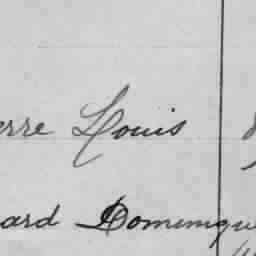 erre Louis
ard Dominique